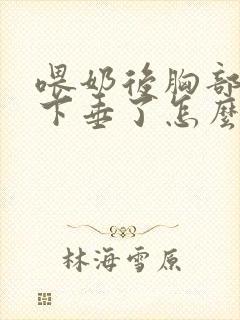 喂奶後胸部
下垂了怎麼
林海雪原